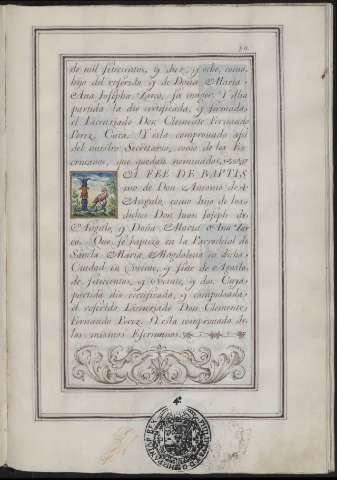 de mil setecientos, y diez, y ocho, como
hijo del referido, y de Doña Maria
Ana Josepha Zarco, su muger. Y esta
partida la dio certificada, y firmada,
el Licenciado Don Clemente Fernando
Perez Cura. Y esta comprouado assi
del nuestro Secretario, como de los Es
criuanos, que quedan nominados.
LA FEE DE BAPTIS
mo de Don Antonio de
Angulo, como hijo de los
dichos Don Juan Joseph de
Angulo, y Doña Maria Ana Zar
co. Que se baptizo en la Parrochial de
Sancta Maria Magdalena en dicha
Ciudad en veinte, y siete de Agosto
de setecientos, y veinte, y dos. Cuya
partida dio certificada, y compulsada
el referido Licenciado Don Clemente
Fernando Perez. Y esta comprouada de
los mismos Escriuanos.